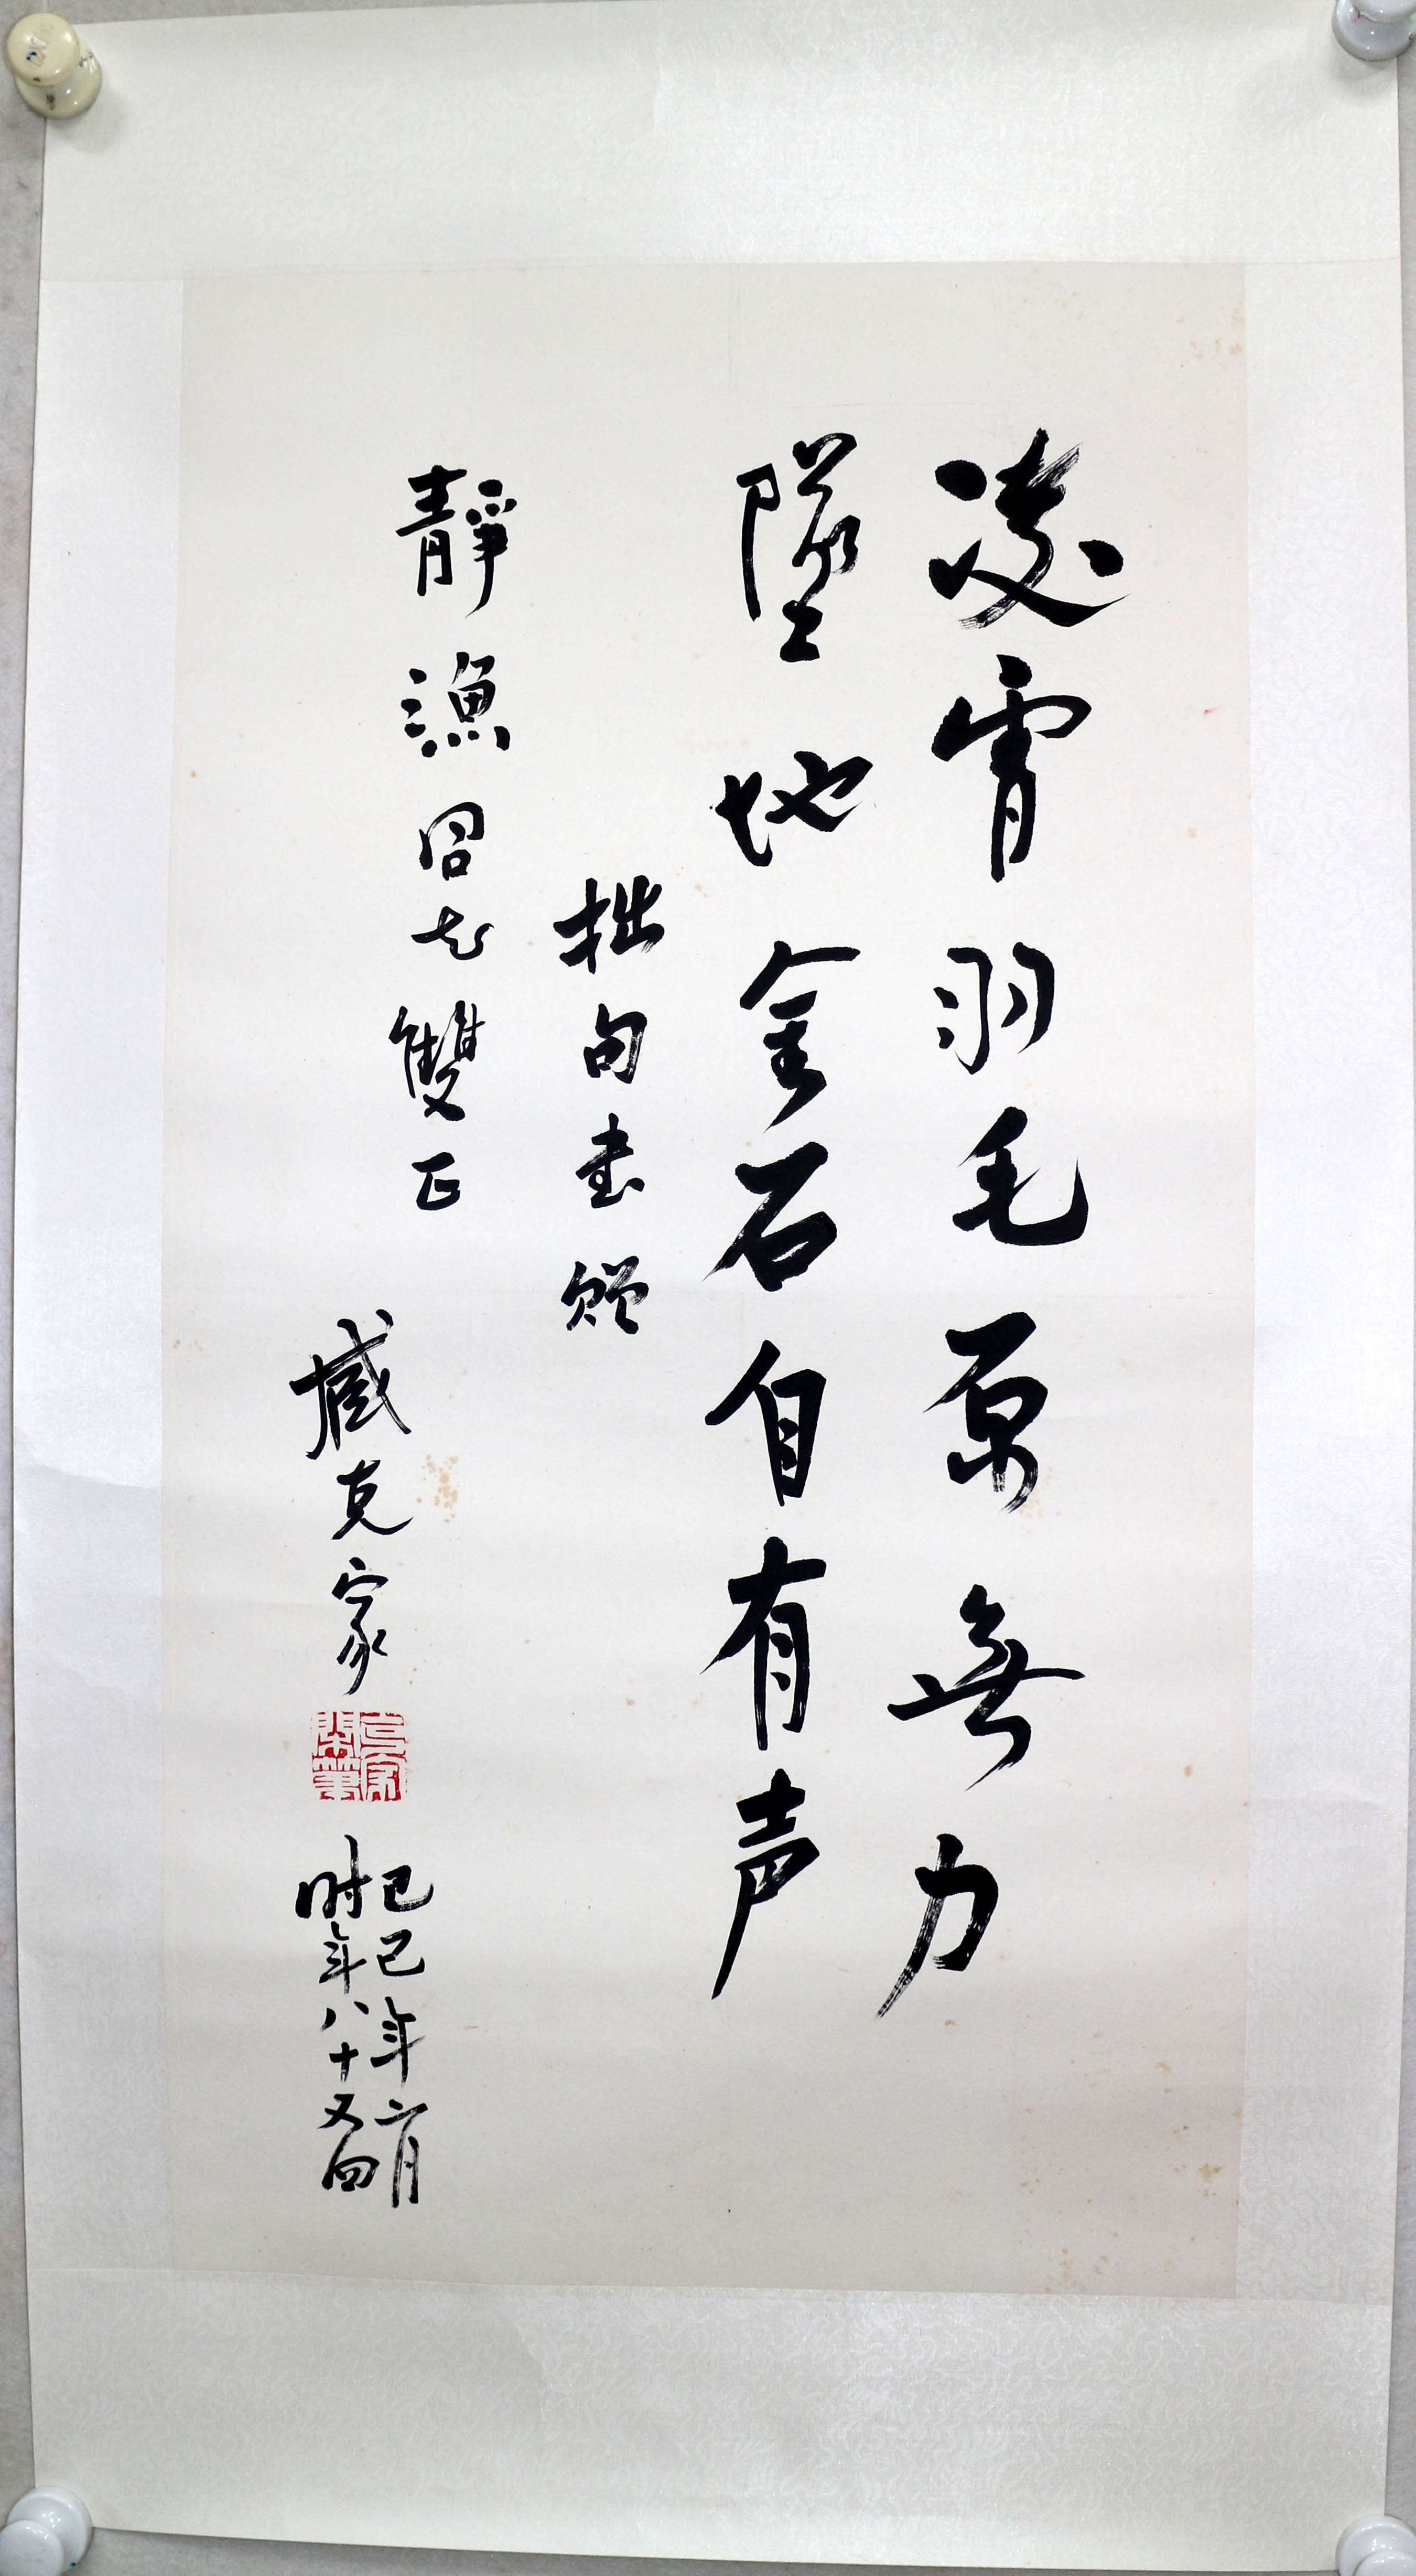 凌霄羽毛原無力
墜地金石自有声
拙句書贈
靜漁同志雙正
臧克家
己巳年六月
时年八十又四